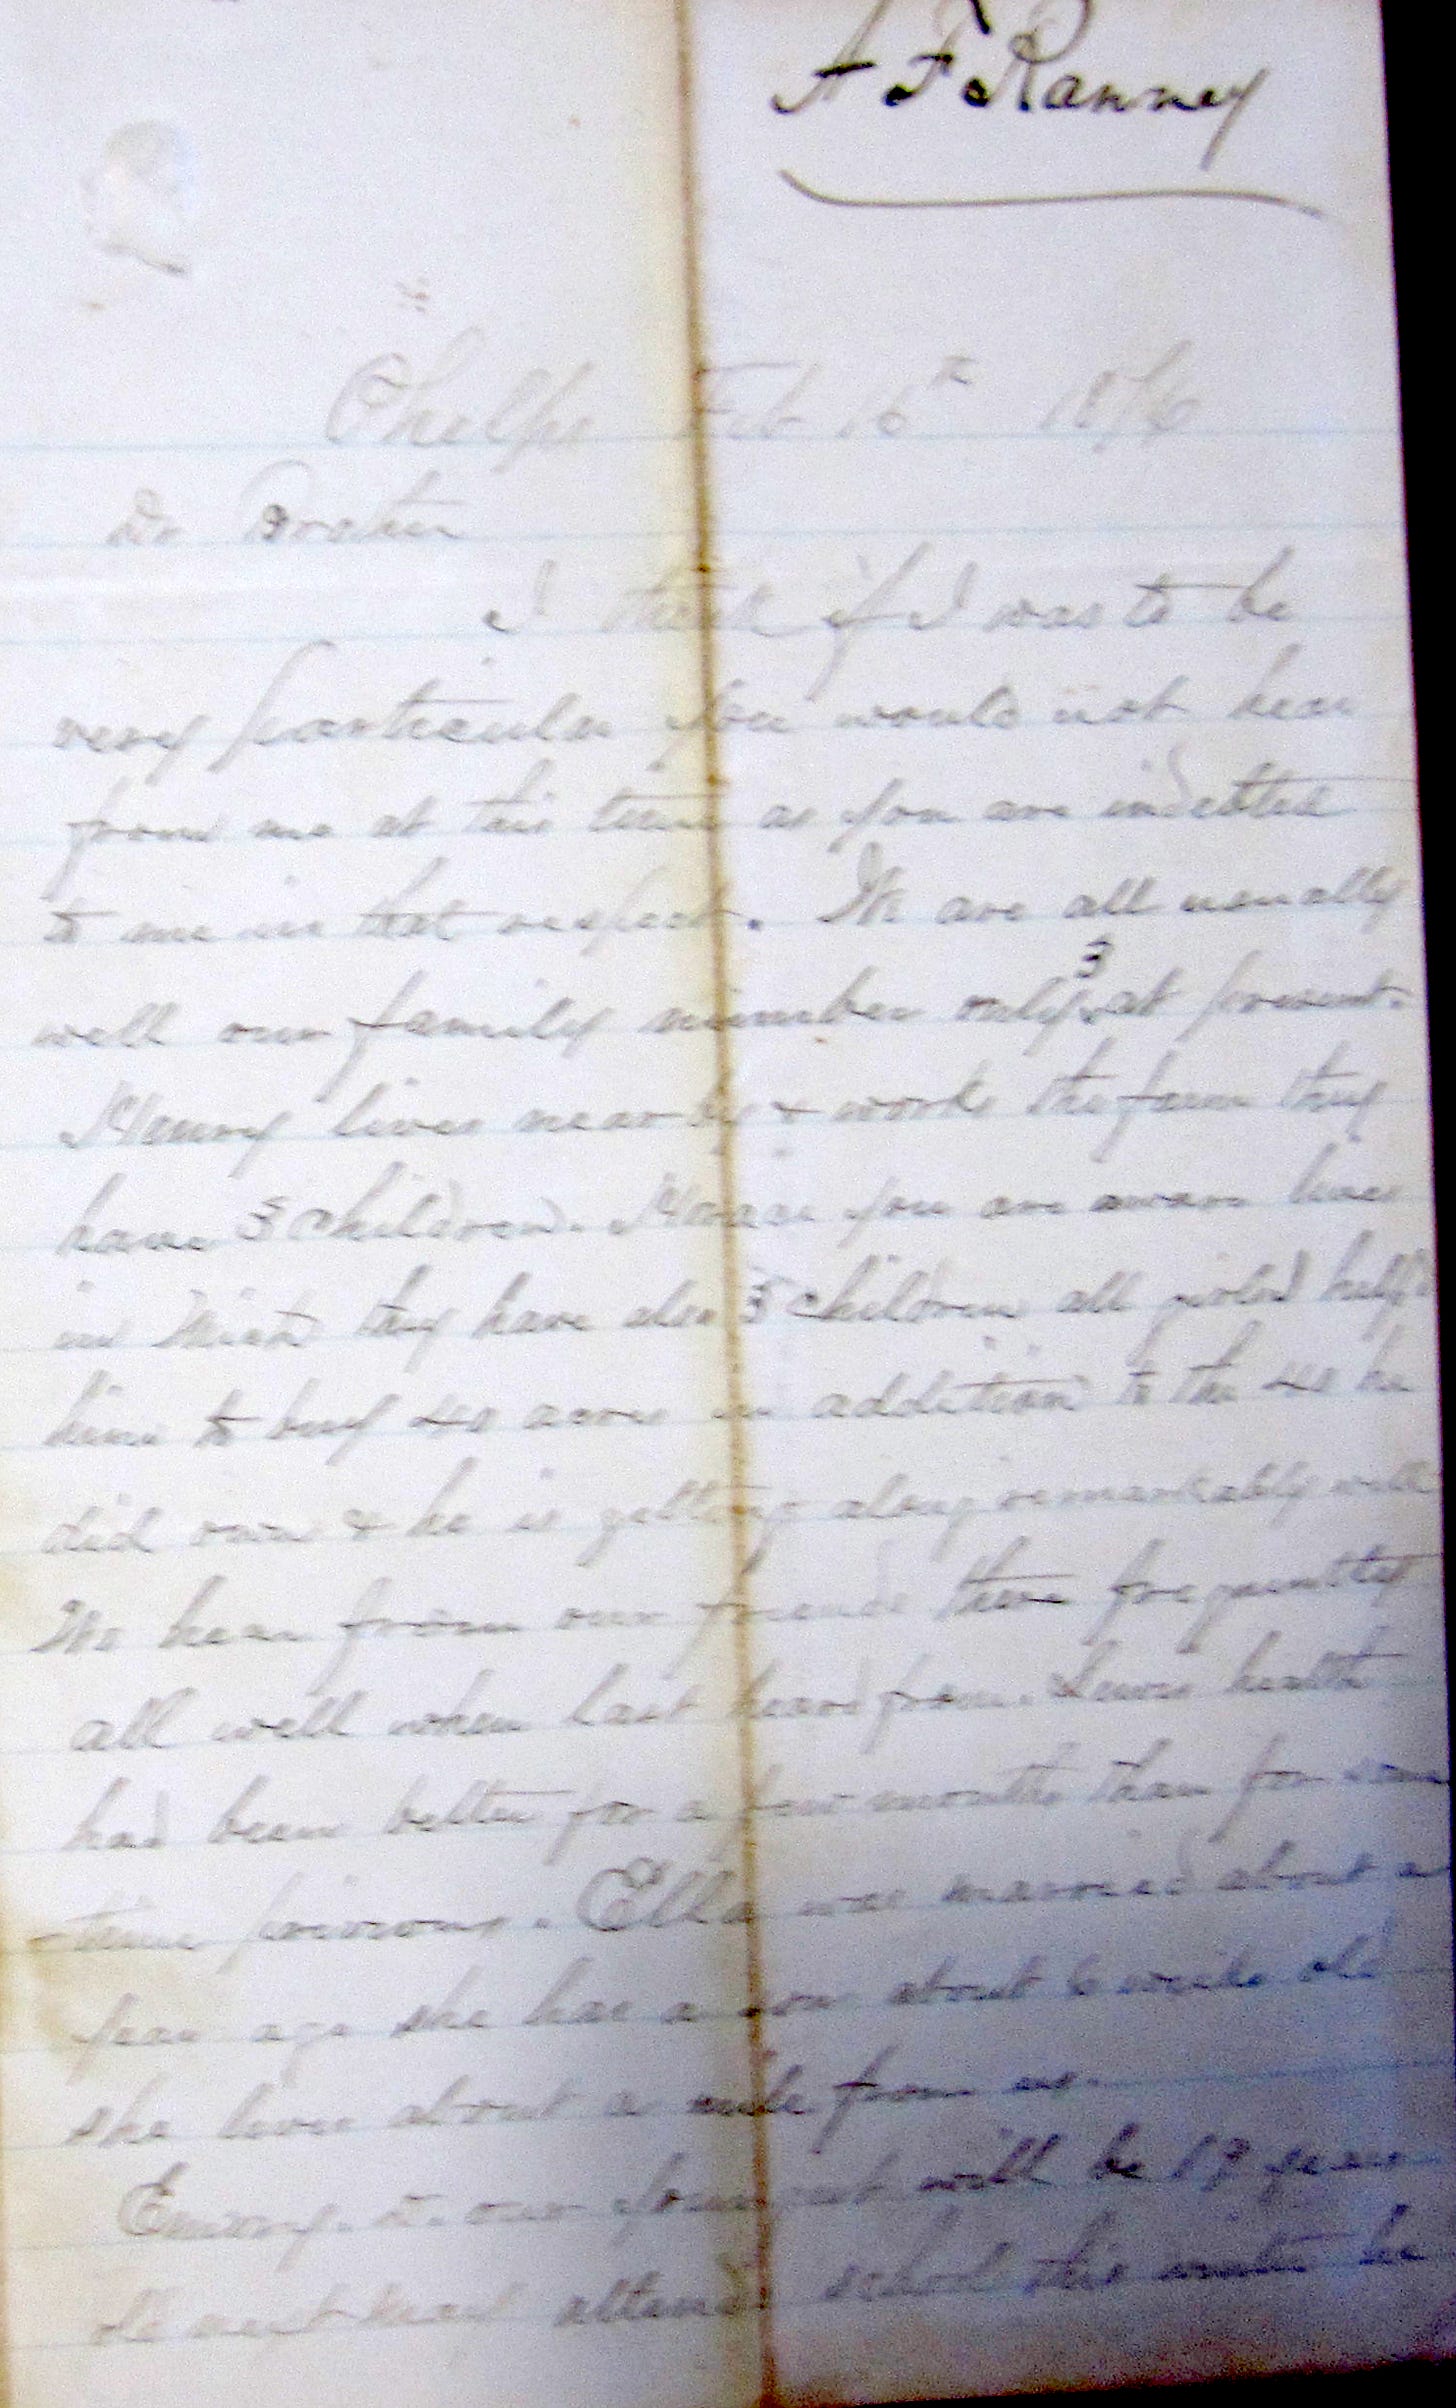 A F Ranney
Phelps Feb 16th 1876
Dr Brother
I think if I was to be
very particular you would not hear
from me at this time as you are indebted
to me in that respect. We are all usually
well our family number only 3 at present.
Henry lives near by & works the farm they
have 3 children. you are aware lives
in Mich they have also 3 children all girls I help'd
him to buy 40 acres in addition to the 40 he
did own & he is getting along remarkably well
We hear from our friends there frequently
all well when last heard from. Lewis health
had been better for a few months than for some
time previous. Ella was married about a
year ago she has a son about 6 weeks old
she lives about a mile from us.
Emory. our youngest will be years
old next attends school this winter he